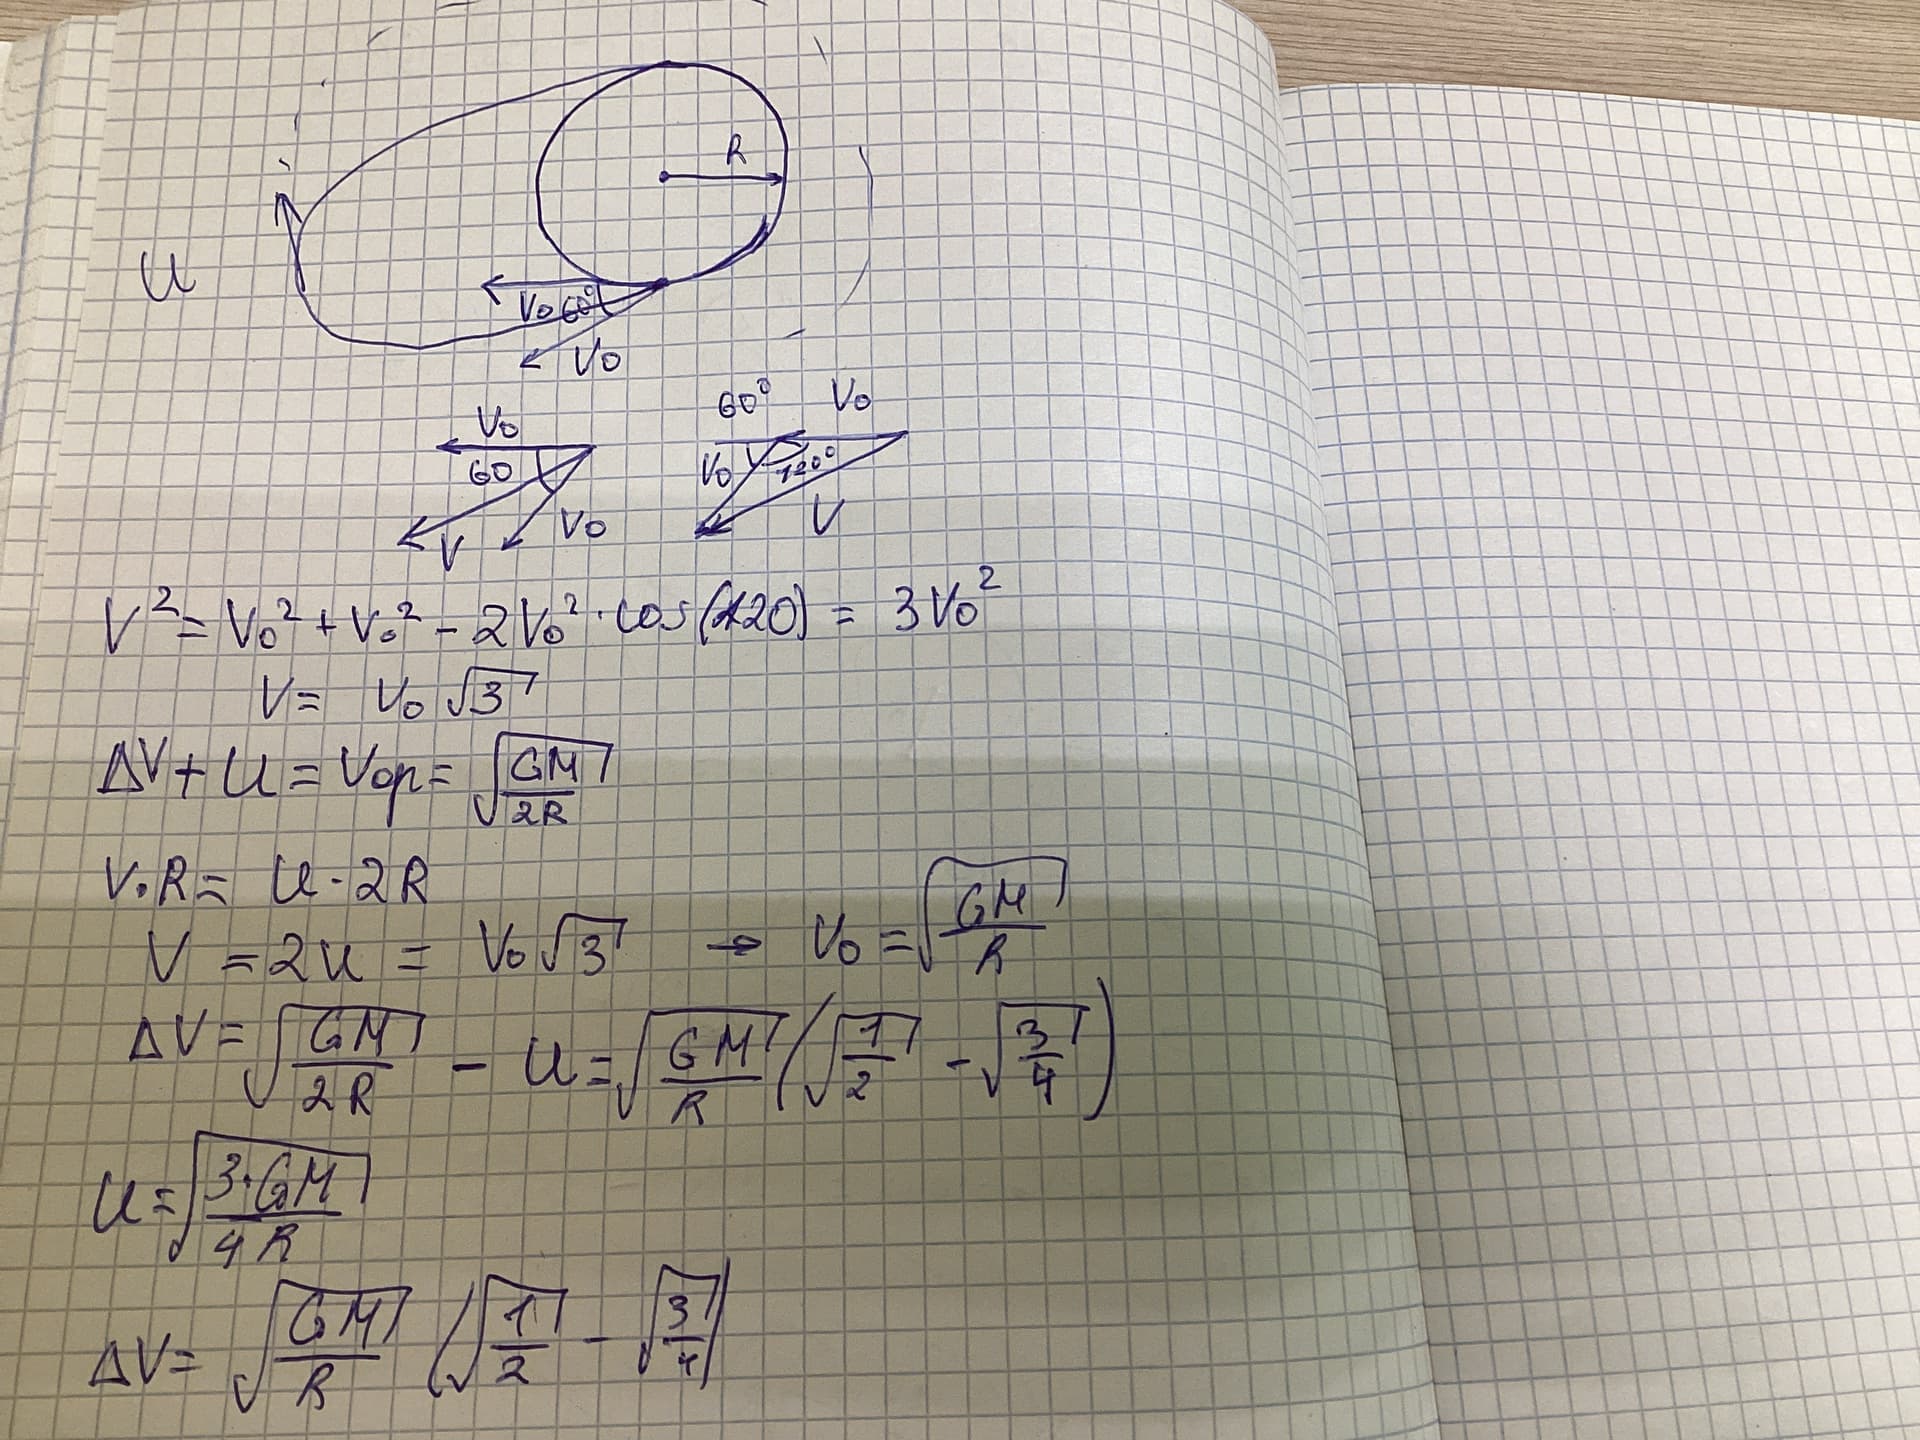 R
U
V₀ 60°
V₀
V₀
60
V
V₀
60° V₀
V₀ 120°
V
V² = V₀² + V₀² - 2V₀² · cos(120) = 3V₀²
V = V₀ √3
ΔV + U = Vор = √(GM/2R)
V·R = U · 2R
V = 2U = V₀ √3 → V₀ = √(GM/R)
ΔV = √(GM/2R) - U = √(GM/R) (√(1/2) - √(3/4))
U = √(3·GM/4R)
ΔV = √(GM/R) (√(1/2) - √(3/4))